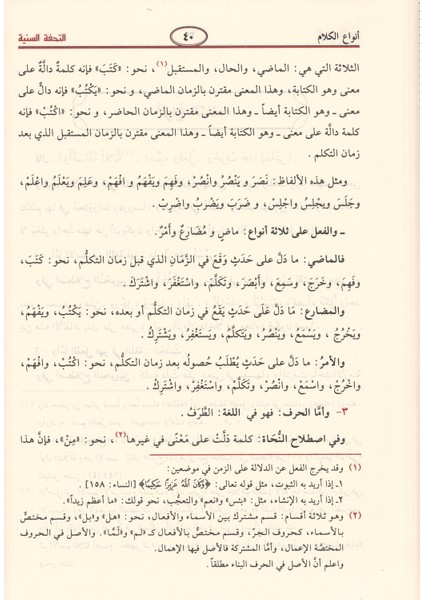 أنواع الكلام ٤٠ التحفة السنية
الثلاثة التي هي: الماضي، والحال، والمستقبل(١)، نحو: «كَتَبَ» فإنه كلمةٌ دالَّةٌ على
معنى وهو الكتابة، وهذا المعنى مقترن بالزمان الماضي، و نحو: «يَكْتُبُ» فإنه دالٌّ على
معنى ـ وهو الكتابة أيضاً ـ وهذا المعنى مقترن بالزمان الحاضر، و نحو: «اكْتُبْ» فإنه
كلمة دالة على معنى ـ وهو الكتابة أيضاً ـ وهذا المعنى مقترن بالزمان المستقبل الذي بعد
زمان التكلم .
ومثل هذه الألفاظ: نَصَرَ وَ يَنْصُرُ وانْصُرْ، وفَهِمَ وَيَفْهَمُ وَ افْهَمْ، وعَلِمَ وَيَعْلَمُ واعْلَمْ،
وجَلَسَ ويجْلِسُ واجْلِسْ، وَ ضَرَبَ وَيَضْرِبُ واضْرِبْ.
ـ والفعل على ثلاثة أنواع: ماضٍ و مُضَارِعٌ وأَمْرٌ.
فالماضي: ما دَلَّ على حَدَثٍ وَقَعَ في الزَّمَانِ الذي قبل زمان التكلُّم، نحو: كَتَبَ،
وفَهِمَ، وخَرَجَ، وسَمِعَ، وأَبْصَرَ، وتَكَلَّمَ، واسْتَغْفَرَ، واشْتَرَكَ.
والمضارع: مَا دَلَّ عَلَى حَدَثٍ يَقَعُ في زمان التكلُّم أو بعده، نحو: يَكْتُبُ، ويَفْهَمُ،
ويَخْرُجُ ، ويَسْمَعُ، ويَنْصُرُ، ويَتَكلَّمُ، ويَسْتَغْفِرُ، ويَشْتَرِكُ.
والأمرُ: ما دَلَّ على حَدَثٍ يُطْلَبُ حُصولُه بعد زمان التكلُّم، نحو: اكْتُبْ، وافْهَمْ،
واخْرُجْ، واسْمَعْ، وانْصُرْ، وتَكَلَّمْ، واسْتَغْفِرْ، واشْتَرِكْ.
٣- وأمَّا الحرف: فهو في اللغة: الطَّرَفُ .
وفي اصطلاح النُّحَاة: كلمة دَلَّتْ على مَعْنًى في غيرها(٢)، نحو: «مِنْ»، فإنَّ هذا
(١) وقد يخرج الفعل عن الدلالة على الزمن في موضعين:
١ـ إذا أريد به الثبوت، مثل قوله تعالى: ﴿وَكَانَ اللَّهُ عَزِيزًا حَكِيمًا﴾ [النساء: ١٥٨] .
٢ـ إذا أريد به الإنشاء، مثل: «بئس» و«نعم» والتعجُّب، نحو قولك: «ما أعظم زيداً».
(٢) وهو ثلاثة أقسام: قسم مشترك بين الأسماء والأفعال، نحو: «هل» و«بل»، وقسم مختصٌّ
بالأسماء، كحروف الجرّ، وقسم مختصٌّ بالأفعال كـ «لم» و«لَمَّا». والأصل في الحروف
المختصّة الإعمال، وأما المشتركة فالأصل فيها الإهمال.
واعلم أنَّ الأصل في الحرف البناء مطلقاً.